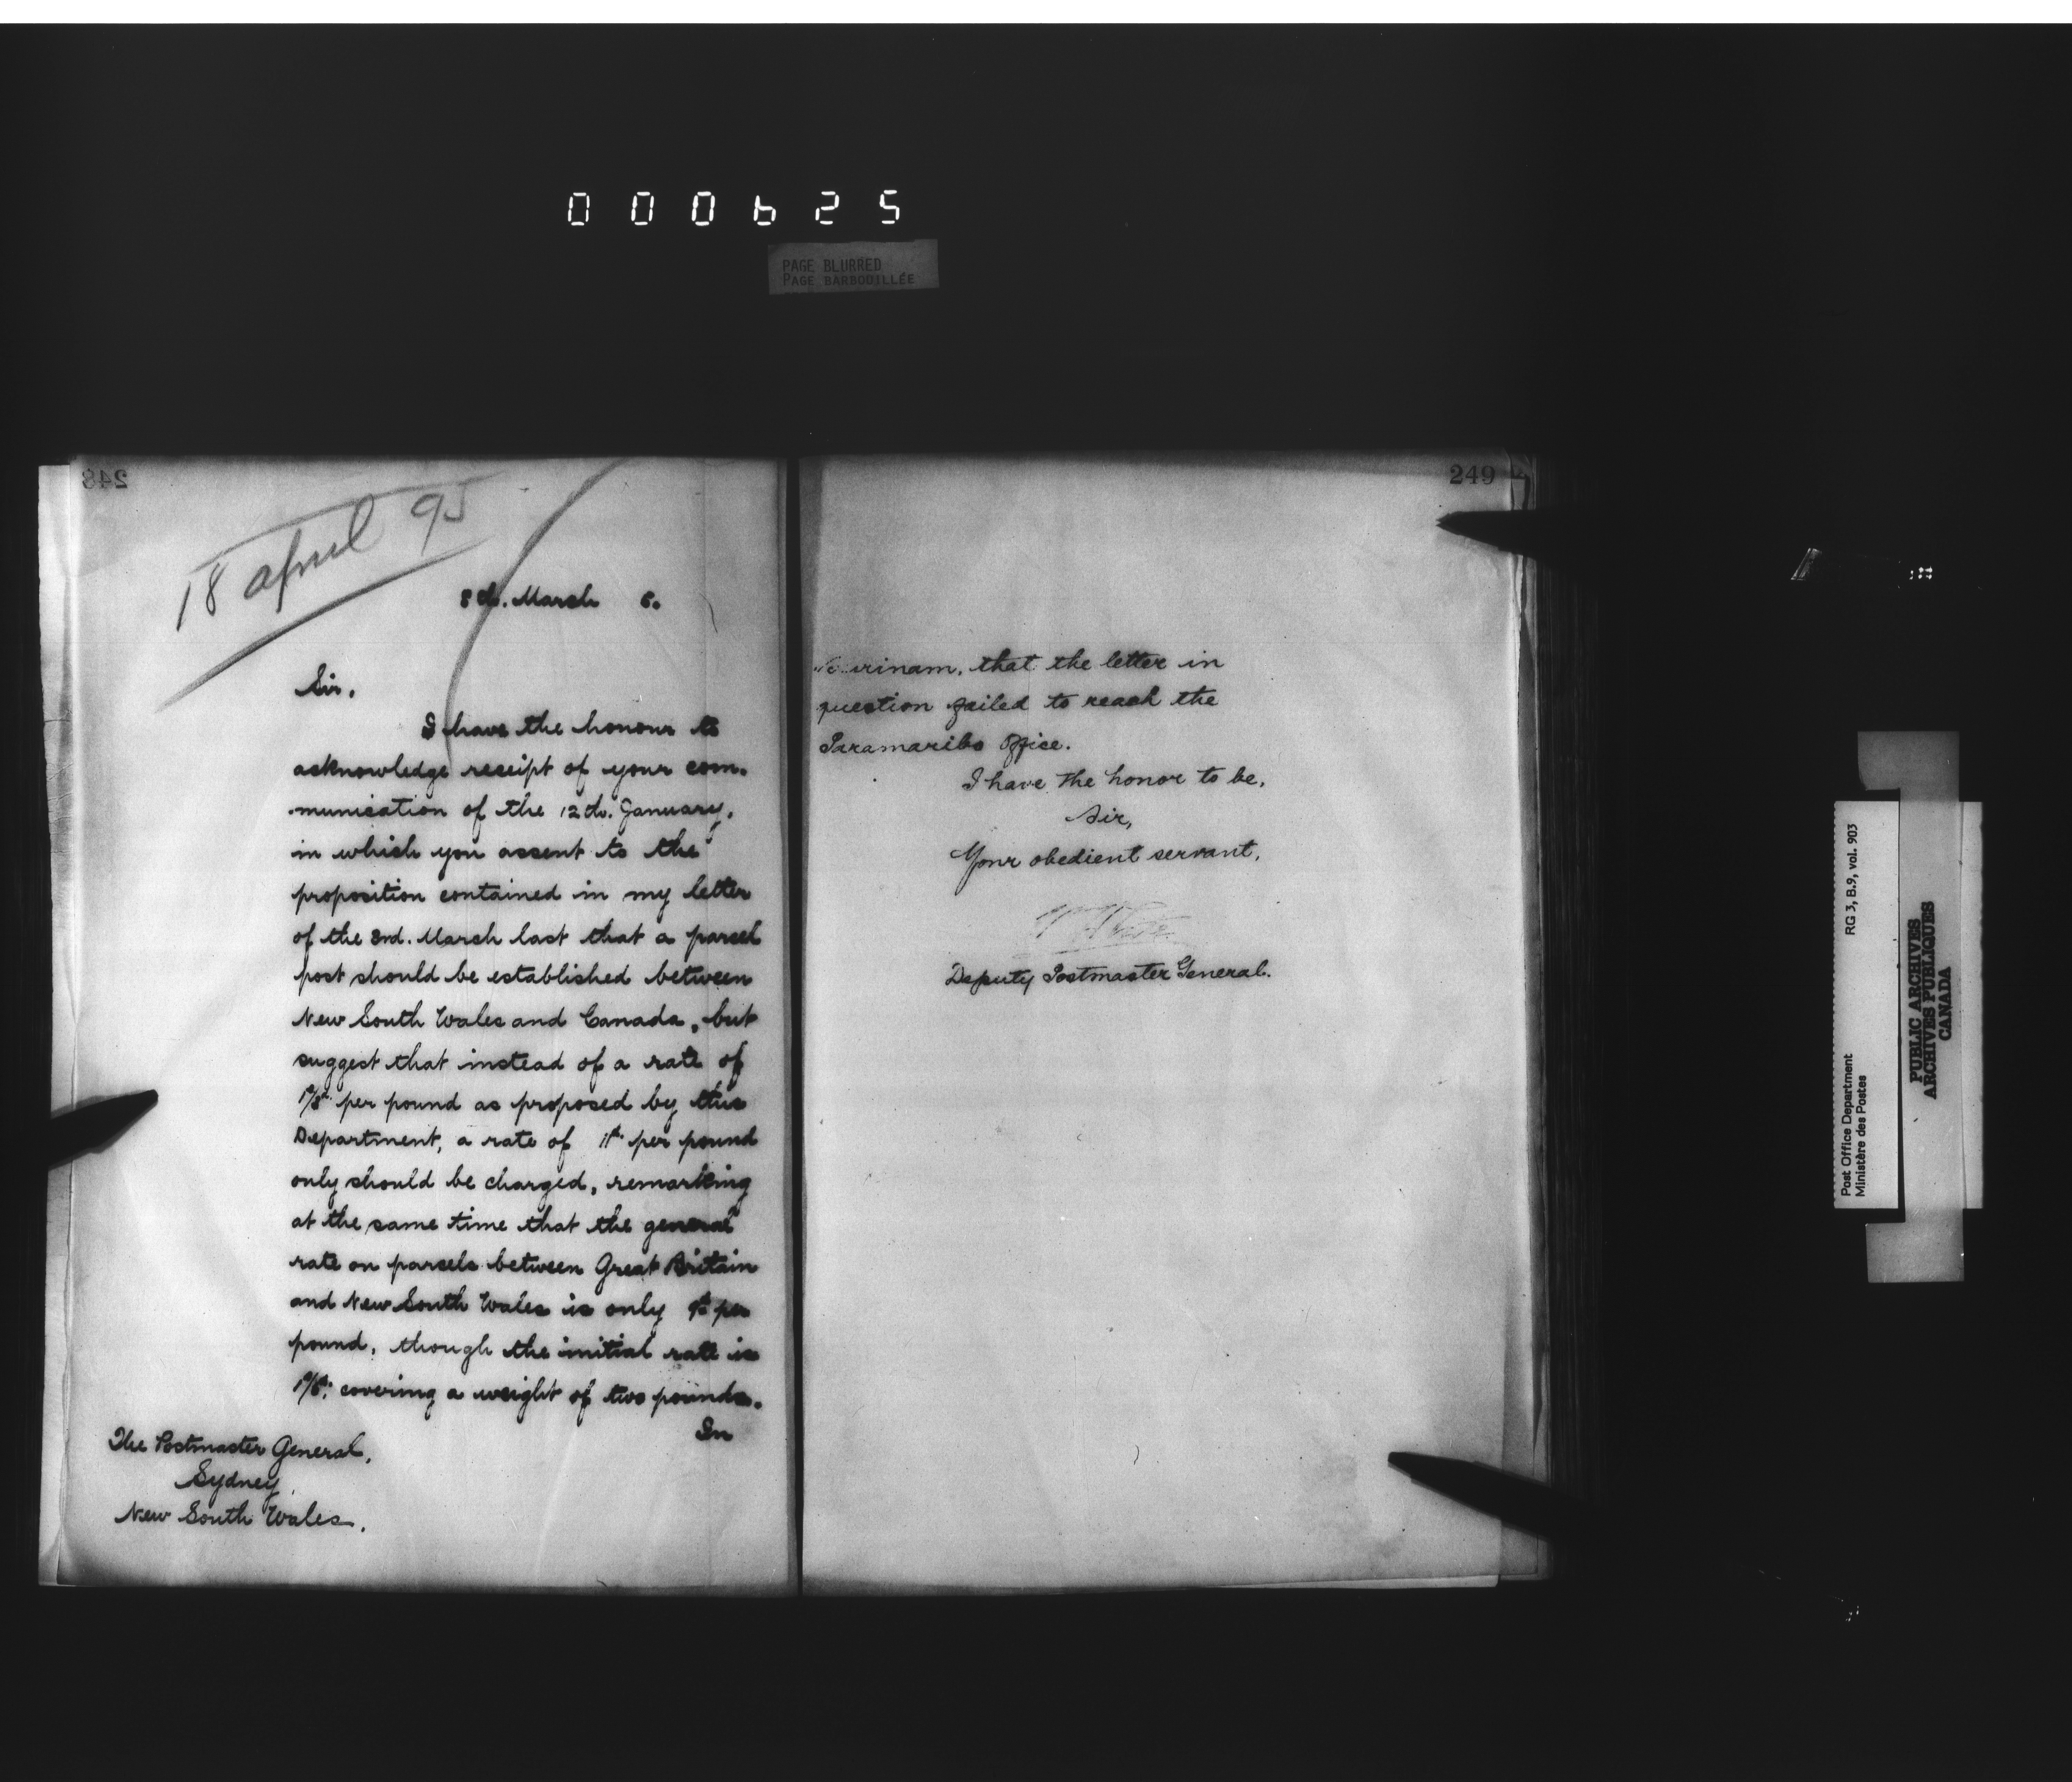 000625
PAGE BLURRED
PAGE BARBOUILLÉE
248
18 april 95
8th. March 5.
Sir,
I have the honour to
acknowledge receipt of your com-
munication of the 12th. January,
in which you assent to the
proposition contained in my letter
of the 3rd. March last that a parcel
post should be established between
New South Wales and Canada, but
suggest that instead of a rate of
per pound as proposed by this
Department, a rate of per pound
only should be charged, remarking
at the same time that the general
rate on parcels between Great Britain
and New South Wales is only 9d. per
pound, though the initial rate is
covering a weight of two pounds.
In
The Postmaster General,
Sydney,
New South Wales.
249
that the letter in
question failed to reach the
Paramaribo Office.
I have the honor to be,
Sir,
Your obedient servant,
Deputy Postmaster General.
Post Office Department RG 3, B.9, vol. 903
Ministère des Postes
PUBLIC ARCHIVES
ARCHIVES PUBLIQUES
CANADA